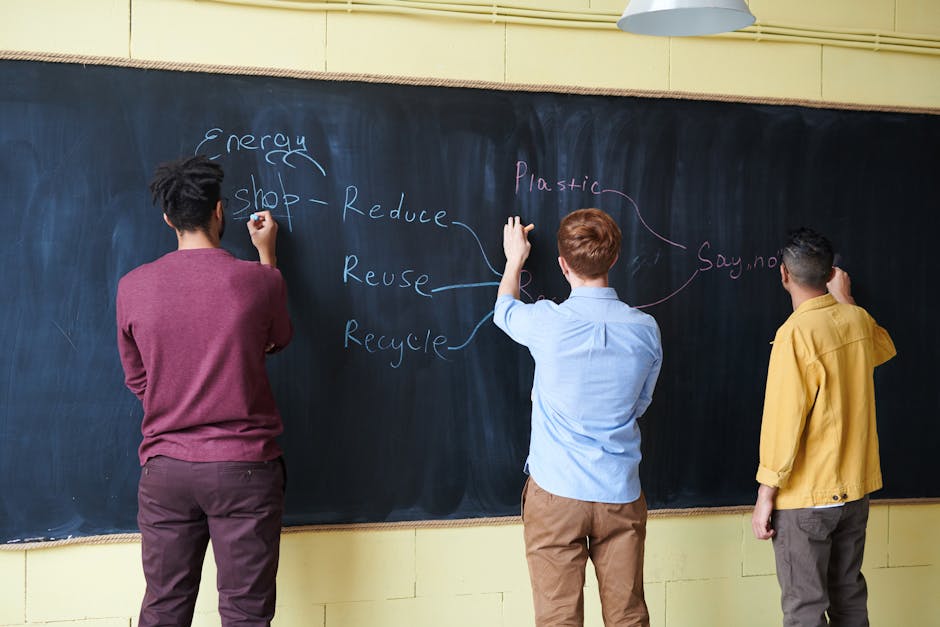 Energy
shop - Reduce
Reuse
Recycle
Plastic
Say, no